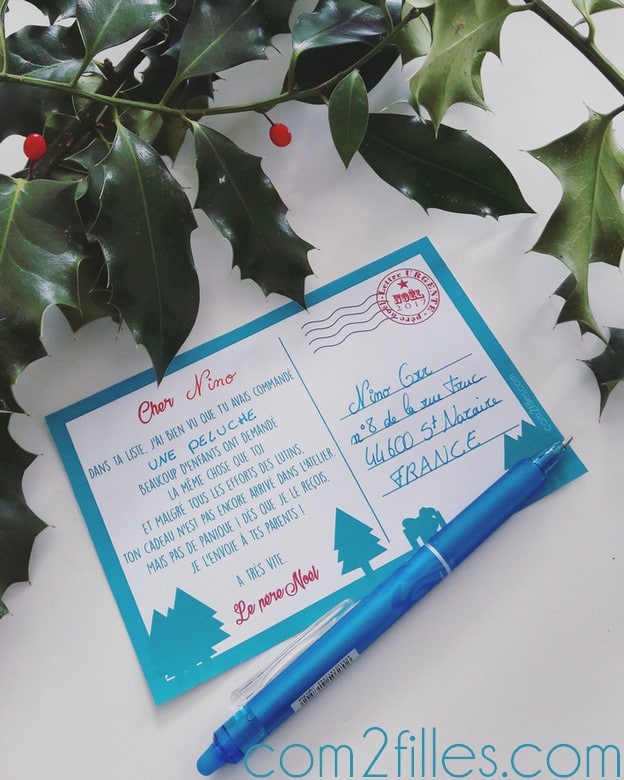 Cher Nino
DANS TA LISTE, J'AI BIEN VU QUE TU AVAIS COMMANDÉ
UNE PELUCHE
BEAUCOUP D'ENFANTS ONT DEMANDÉ
LA MÊME CHOSE QUE TOI
ET MALGRÉ TOUS LES EFFORTS DES LUTINS,
TON CADEAU N'EST PAS ENCORE ARRIVÉ DANS L'ATELIER.
MAIS PAS DE PANIQUE ! DÈS QUE JE LE REÇOIS,
JE L'ENVOIE À TES PARENTS !
A TRÈS VITE,
Le père Noel
Lettre URGENTE
père-Noël
NOËL
2017
Nino Grr
n°8 de la rue truc
44600 St Nazaire
FRANCE
com2filles.com
com2filles.com